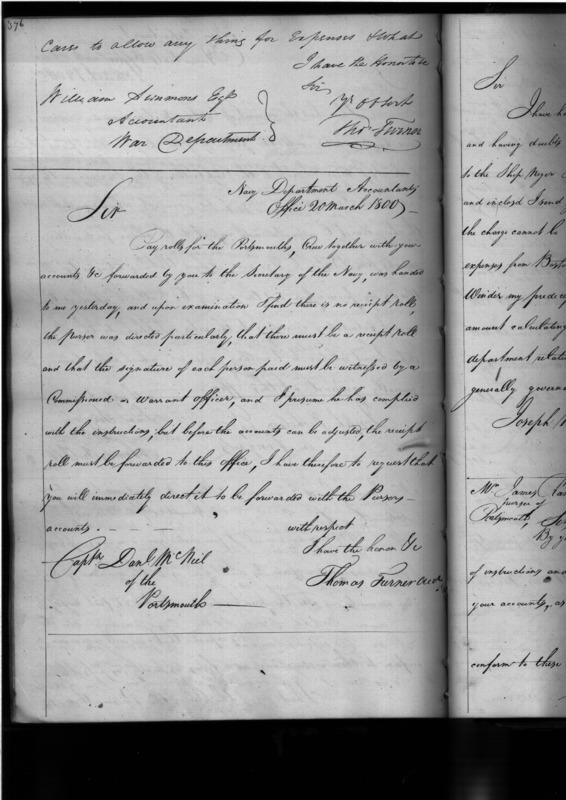 376
Cases to allow any thing for Expenses & what
I have the Honor to be
Sir
William Simmons Esqr
Yr Ob Sert
Accountant
War Department
Tho. Turner
Navy Department Accountants
Office 20 March 1800
Sir
Pay rolls for the Portsmouths, Crew together with your
accounts &c forwarded by you to the Secretary of the Navy, was handed
to me yesterday, and upon examination I find there is no receipt roll,
the Purser was directed particularly, that there must be a receipt roll
and that the signature of each person paid must be witnessed by a
Commissioned or Warrant officer, and I presume he has complied
with the instructions, but before the accounts can be adjusted, the receipt
roll must be forwarded to this office, I have therefore to request that
you will immediately direct it to be forwarded with the Pursers
accounts.
with respect
I have the honor &c
Captn Danl. McNeil
of the
Thomas Turner
Portsmouth
Sir
I have
and having doubts
to the Ship
and inclosed I send
the charge cannot be
expenses from Bost
Winder my predec
amount calculating
department relat
generally govern
Joseph
Mr James
Purser of
Portsmouth
Sir
By y
of instructions and
your accounts, as
conform to these